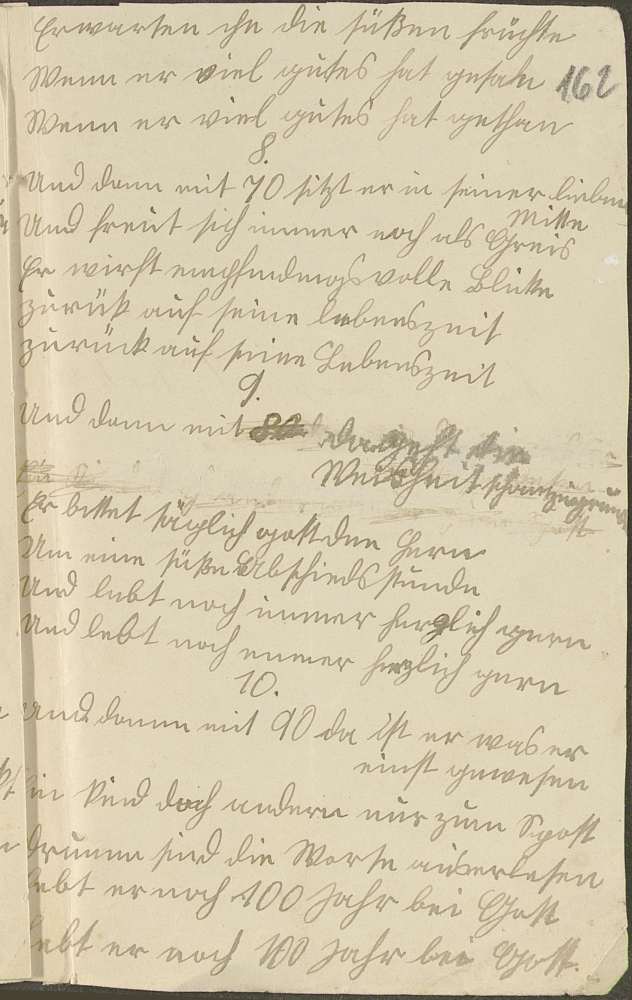 Erwarten ihn die süßen früchte
Wenn er viel gutes hat gethan 162
Wenn er viel gutes hat gethan
8.
Und dann mit 70 sitzt er in seiner lieben
Mitte
Und freut sich immer noch als Greis
Er wirft empfindungsvolle Blicke
zurück auf seine lebenszeit
zurück auf seine Lebenszeit
9.
Und dann mit 80 da geht die
Weisheit schon zugrund
Er bittet täglich gott den Herrn
Um eine süße Abschiedsstunde
Und lebt noch immer herzlich gern
Und lebt noch immer herzlich gern
10.
Und dann mit 90 da ist er was er
einst gewesen
ein Kind doch andern nur zum Spott
Drumm sind die Worte auserlesen
Lebt er noch 100 Jahr bei Gott
Lebt er noch 100 Jahr bei Gott.